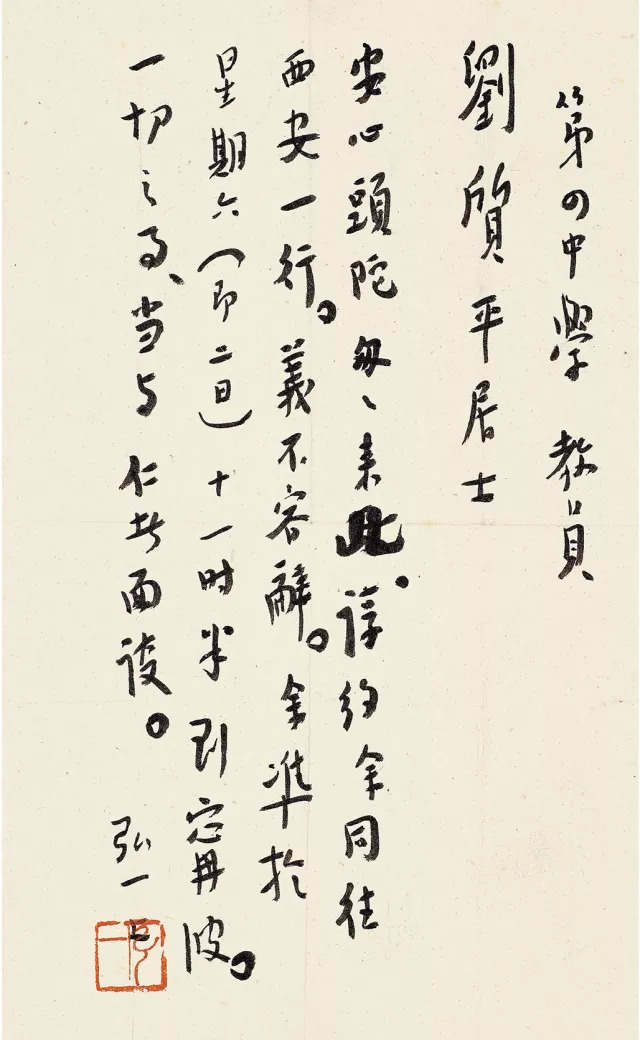 第四中學 教員
劉質平居士
安心頭陀匆〻来此。諄約余同往
西安一行。義不容辭。余準於
星期六（即二日）十一时半到寗波。
一切之事、当与仁者面談。
弘一上
弘一